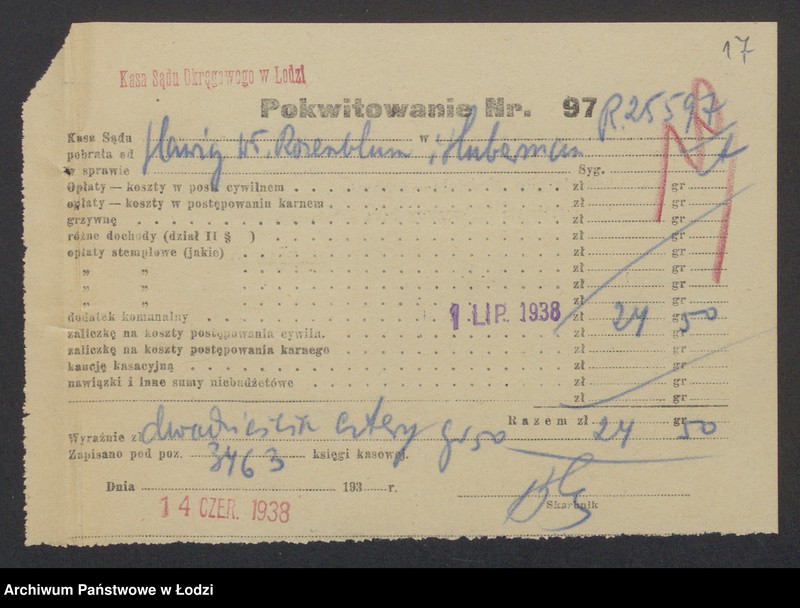 17
Kasa Sądu Okręgowego w Lodzi
Pokwitowanie Nr. 97
R. 25597
Kasa Sądu w
pobrała od W. Rosenblum i Huberman
w sprawie Syg.
Opłaty — koszty w post. cywilnem zł gr
opłaty — koszty w postępowaniu karnem zł gr
grzywnę zł gr
różne dochody (dział II § ) zł gr
opłaty stemplowe (jakie) zł gr
„ „ zł gr
„ „ zł gr
„ „ zł gr
dodatek komunalny 1 LIP. 1938 zł 24 gr 50
zaliczkę na koszty postępowania cywiln. zł gr
zaliczkę na koszty postępowania karnego zł gr
kaucję kasacyjną zł gr
nawiązki i inne sumy niebudżetowe zł gr
zł gr
Razem zł 24 gr 50
Wyraźnie zł dwadzieścia cztery gr 50
Zapisano pod poz. 3463 księgi kasowej.
Dnia 193 r.
14 CZER. 1938
Skarbnik
Archiwum Państwowe w Łodzi